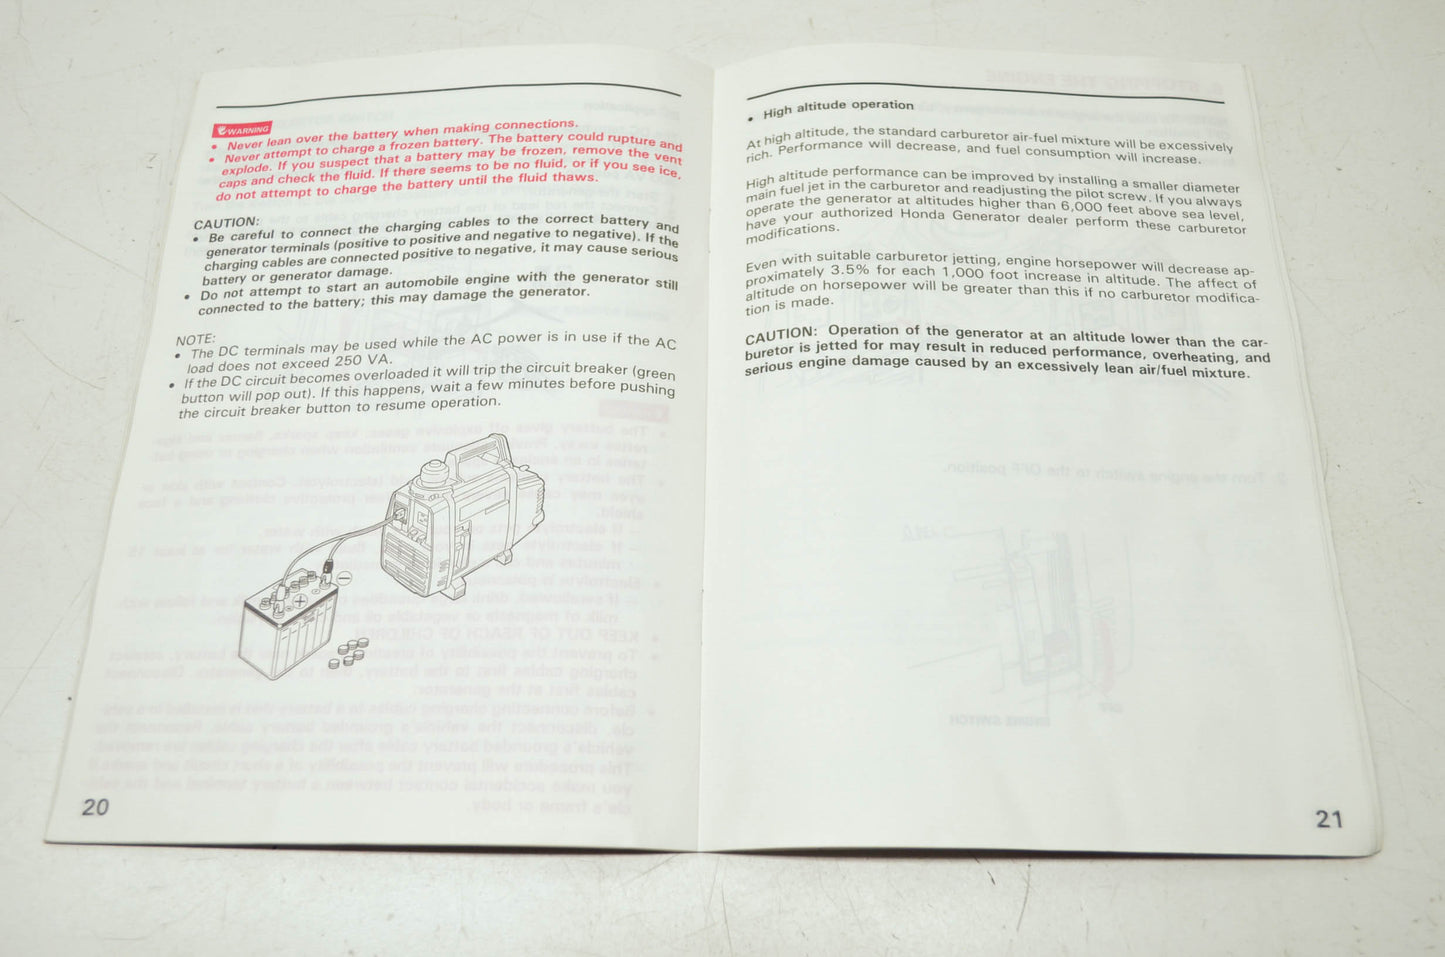 WARNING
• Never lean over the battery when making connections.
• Never attempt to charge a frozen battery. The battery could rupture and
explode. If you suspect that a battery may be frozen, remove the vent
caps and check the fluid. If there seems to be no fluid, or if you see ice,
do not attempt to charge the battery until the fluid thaws.
CAUTION:
• Be careful to connect the charging cables to the correct battery and
generator terminals (positive to positive and negative to negative). If the
charging cables are connected positive to negative, it may cause serious
battery or generator damage.
• Do not attempt to start an automobile engine with the generator still
connected to the battery; this may damage the generator.
NOTE:
• The DC terminals may be used while the AC power is in use if the AC
load does not exceed 250 VA.
• If the DC circuit becomes overloaded it will trip the circuit breaker (green
button will pop out). If this happens, wait a few minutes before pushing
the circuit breaker button to resume operation.
20
• High altitude operation
At high altitude, the standard carburetor air-fuel mixture will be excessively
rich. Performance will decrease, and fuel consumption will increase.
High altitude performance can be improved by installing a smaller diameter
main fuel jet in the carburetor and readjusting the pilot screw. If you always
operate the generator at altitudes higher than 6,000 feet above sea level,
have your authorized Honda Generator dealer perform these carburetor
modifications.
Even with suitable carburetor jetting, engine horsepower will decrease ap-
proximately 3.5% for each 1,000 foot increase in altitude. The affect of
altitude on horsepower will be greater than this if no carburetor modifica-
tion is made.
CAUTION: Operation of the generator at an altitude lower than the car-
buretor is jetted for may result in reduced performance, overheating, and
serious engine damage caused by an excessively lean air/fuel mixture.
21